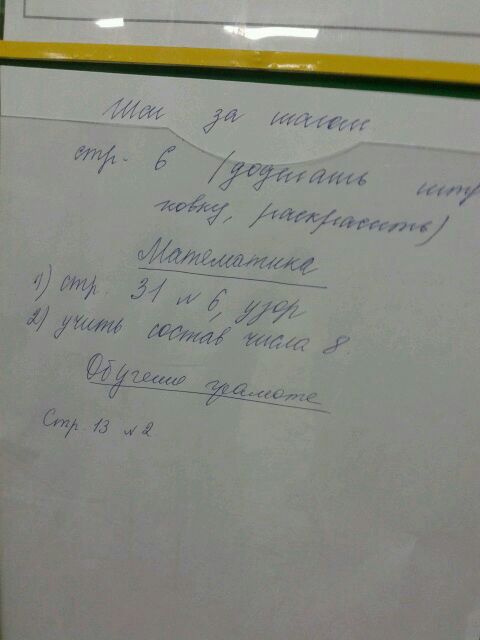 Шаг за шагом
стр. 6 (доделать штри
ховку, раскрасить)
Математика
1) стр. 31 № 6, узор
2) учить состав числа 8.
Обучение грамоте
Стр. 13 № 2